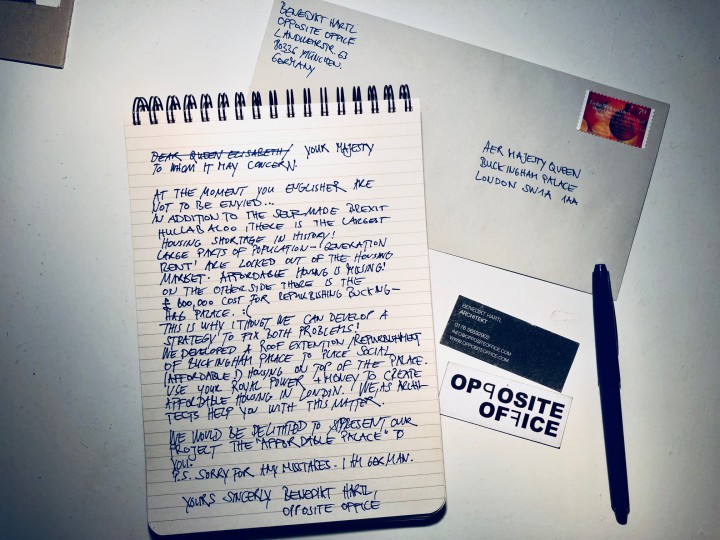 BENEDIKT HARTL
OPPOSITE OFFICE
LANDWEHRSTR. 63
80336 MÜNCHEN.
GERMANY
70
HER MAJESTY QUEEN
BUCKINGHAM PALACE
LONDON SW1A 1AA
DEAR QUEEN ELISABETH/ YOUR MAJESTY
TO WHOM IT MAY CONCERN.
AT THE MOMENT YOU ENGLISHER ARE
NOT TO BE ENVIED...
IN ADDITION TO THE SELF-MADE BREXIT
HULLABALOO (THERE IS THE LARGEST
HOUSING SHORTAGE IN HISTORY!
LARGE PARTS OF POPULATION - 'GENERATION
RENT' ARE LOCKED OUT OF THE HOUSING
MARKET. AFFORDABLE HOUSING IS MISSING!
ON THE OTHER SIDE THERE IS THE
£ 600,000 COST FOR REFURBISHING BUCKING-
HAM PALACE. :(
THIS IS WHY I THOUGHT WE CAN DEVELOP A
STRATEGY TO FIX BOTH PROBLEMS!
WE DEVELOPED A ROOF EXTENTION/REFURBISHMENT
OF BUCKINGHAM PALACE TO PLACE SOCIAL
(AFFORDABLE) HOUSING ON TOP OF THE PALACE.
USE YOUR ROYAL POWER + MONEY TO CREATE
AFFORDABLE HOUSING IN LONDON. WE AS ARCHI-
TECTS HELP YOU WITH THIS MATTER.
WE WOULD BE DELIGHTED TO PRESENT OUR
PROJECT THE "AFFORDABLE PALACE" TO
YOU.
P.S. SORRY FOR ANY MISSTAKES. I AM GERMAN.
YOURS SINCERLY BENEDIKT HARTL,
OPPOSITE OFFICE
BENEDIKT HARTL
ARCHITEKT
INFO@OPPOSITEOFFICE.COM
WWW.OPPOSITEOFFICE.COM
OPPOSITE
OFFICE